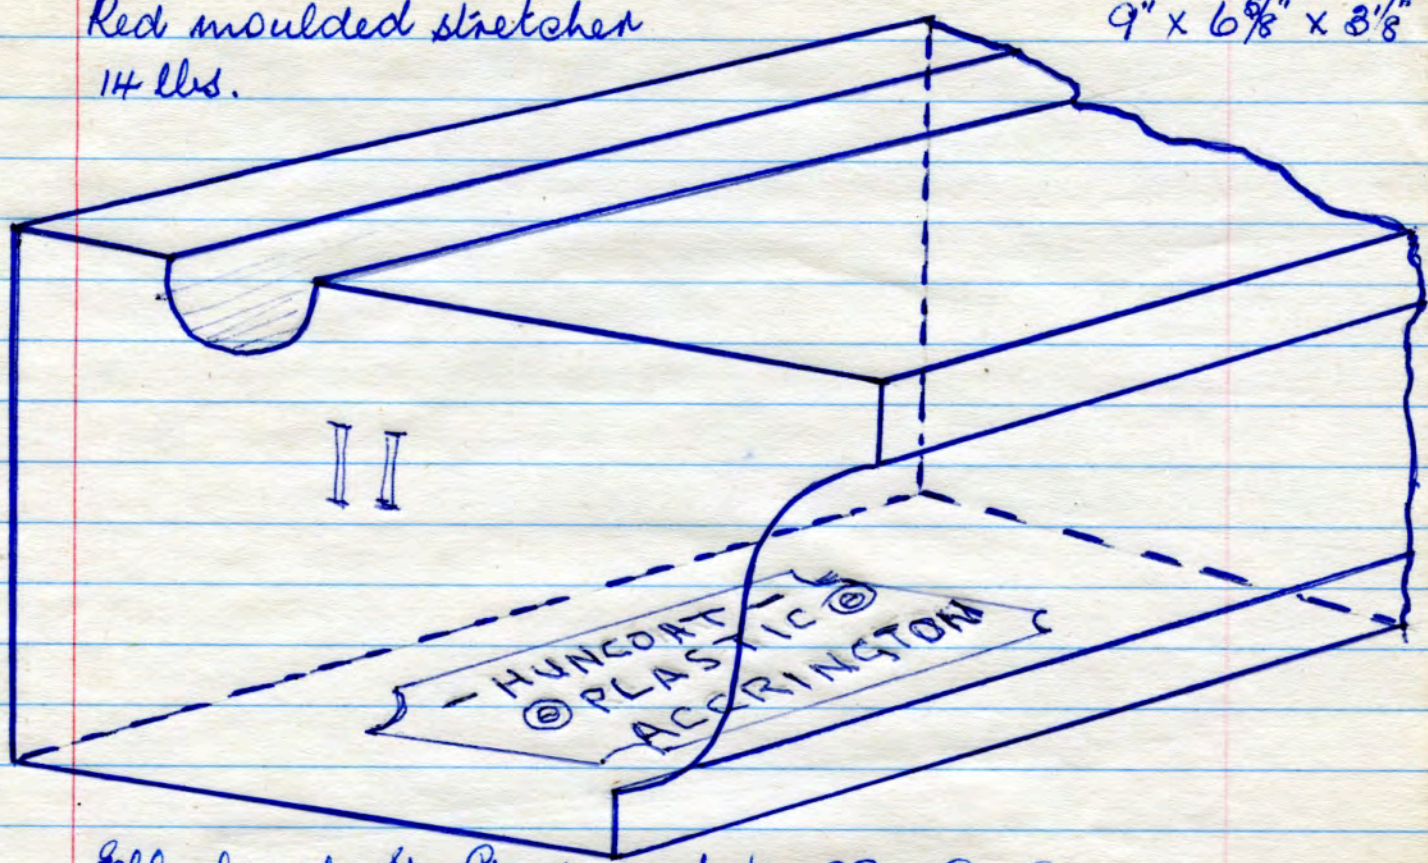 Red moulded stretcher
9" x 6⅝" x 3⅛"
14 lbs.
II
- HUNCOAT -
PLASTIC
ACCRINGTON